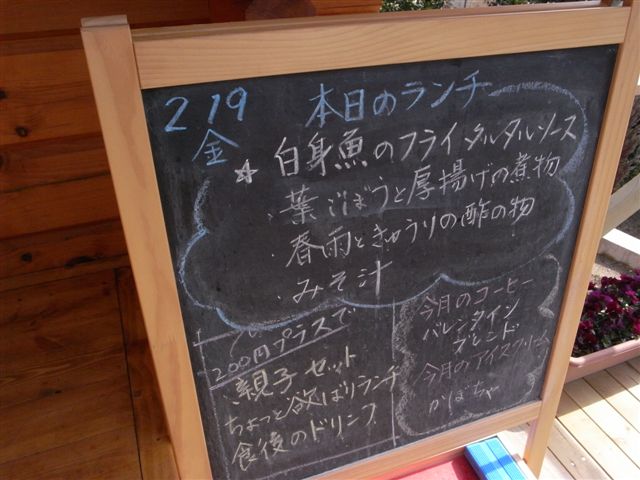 2 19
金
本日のランチ
☆ 白身魚のフライタルタルソース
・葉ごぼうと厚揚げの煮物
・春雨ときゅうりの酢の物
・みそ汁
200円プラスで
親子セット
ちょっと欲ばりランチ
食後のドリンク
今月のコーヒー
バレンタイン
ブレンド
今月のアイスクリーム
かぼちゃ